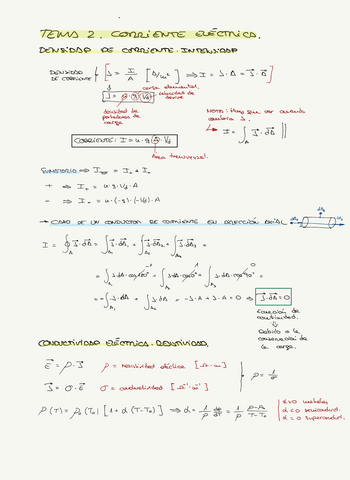 TEMA 2. CORRIENTE ELÉCTRICA.
DENSIDAD DE CORRIENTE. INTENSIDAD
DENSIDAD DE CORRIENTE
J = I/A [A/m²] ⇒ I = J·A = J⃗·A⃗
carga elemental.
J = n·q·Vd
velocidad de deriva
densidad de portadores de carga
NOTA: Hay que ver cuando
I = ∫A J⃗·dA⃗
CORRIENTE: I = n·q·A·Vd
Área transversal.
I+ + I-
+ ⇒ I+ = n·q·Vd·A
- ⇒ I- = n·(-q)·(-Vd)·A
→ CASO DE UN CONDUCTOR DE CORRIENTE EN DIRECCIÓN AXIAL
I = ∮A J⃗·dA⃗ = ∫A1 J⃗·dA⃗1 + ∫A2 J⃗·dA⃗2 + ∫A3 J⃗·dA⃗3 =
= ∫A1 J·dA·cos180° + ∫A2 J·dA·cos0° + ∫A3 J·dA·cos90° =
= -∫A1 J·dA + ∫A2 J·dA = -J·A + J·A = 0 ⇒ J⃗·dA⃗ = 0
Ecuación de continuidad.
Debido a la conservación de la carga.
CONDUCTIVIDAD ELÉCTRICA. RESISTIVIDAD.
E⃗ = ρ·J⃗ ρ = resistividad eléctrica [Ω·m]
J⃗ = σ·E⃗ σ = conductividad [Ω⁻¹·m⁻¹]
ρ = 1/σ
ρ(T) = ρ₀(T₀) [1 + α(T-T₀)] ⇒ α = 1/ρ dρ/dT = 1/ρ ρ-ρ₀/T-T₀
α>0 metales
α<0 semiconduct.
α = 0 superconduct.